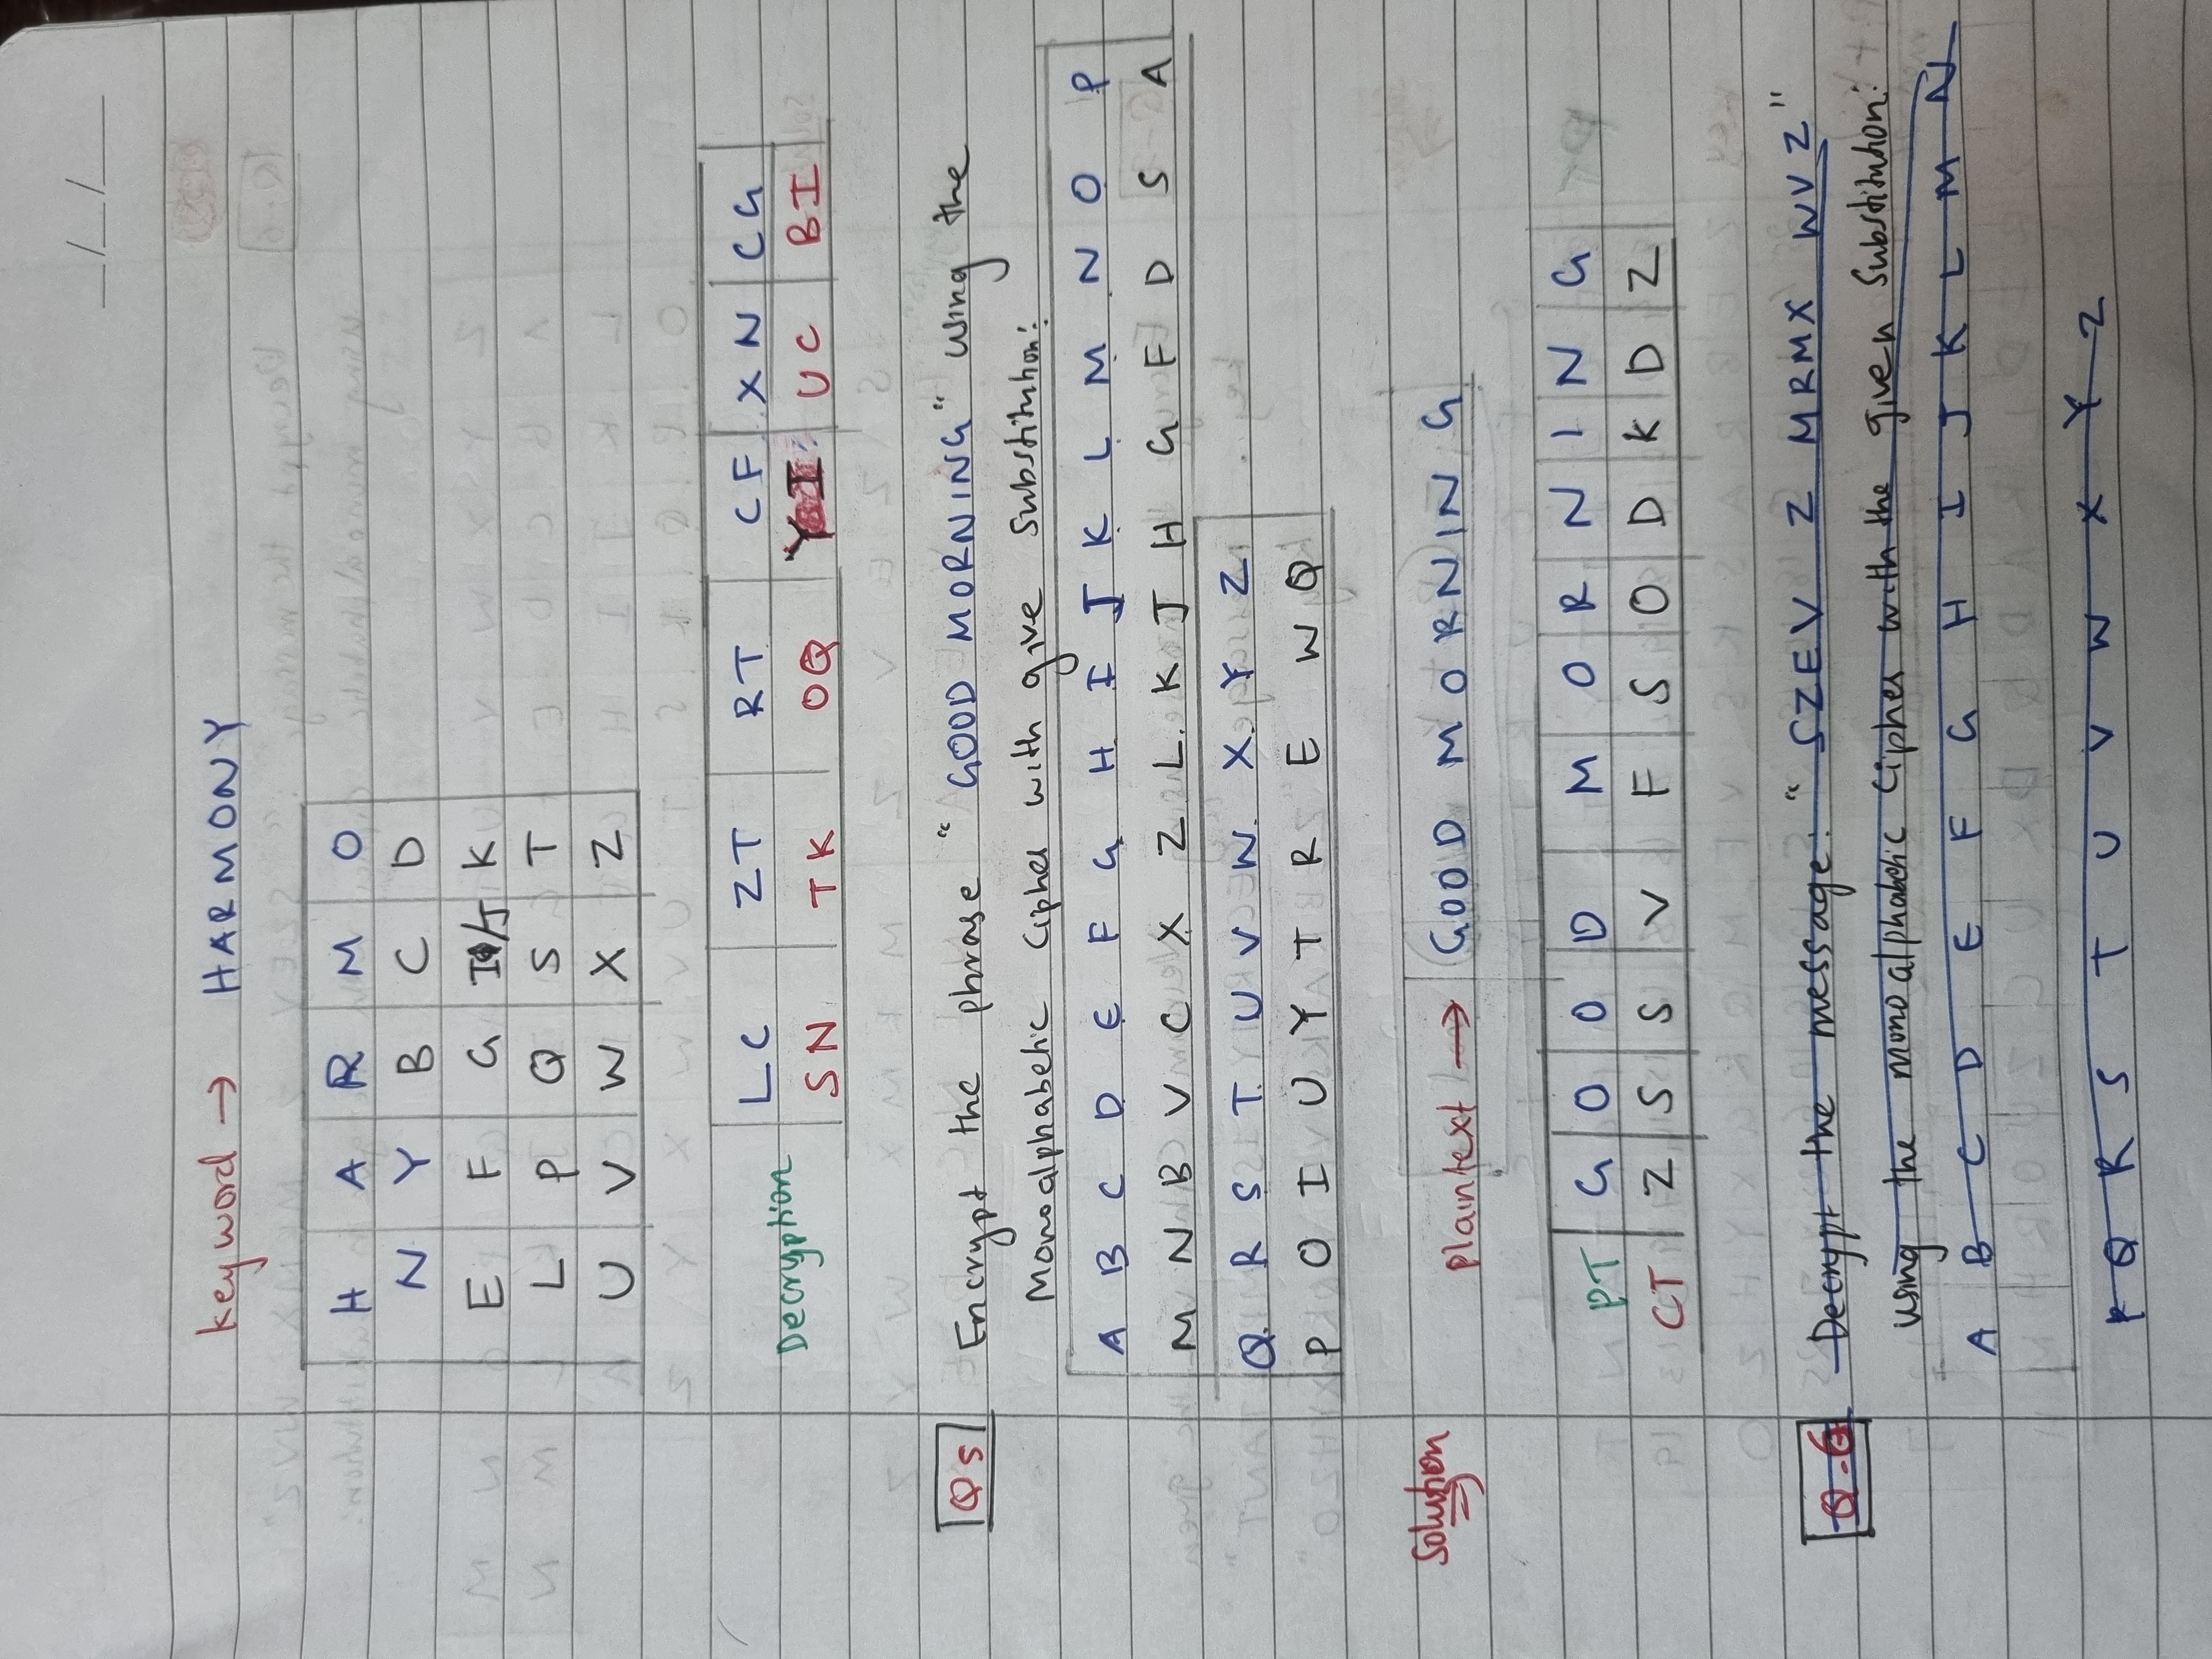 __/__/____
keyword → HARMONY
H A R M O
N Y B C D
E F G I/J K
L P Q S T
U V W X Z
LC ZT RT CF XN CG
Decryption
SN TK OQ YI UC BI
Q5 Encrypt the phrase "GOOD MORNING" using the
Monoalphabetic Cipher with give Substitution:
A B C D E F G H I J K L M N O P
M N B V C X Z L K J H G F D S A
Q R S T U V W X Y Z
P O I U Y T R E W Q
Solution ⇒ Plaintext → GOOD MORNING
PT G O O D M O R N I N G
CT Z S S V F S O D K D Z
Q.6 Decrypt the message: "SZEV Z MRMX WVZ"
using the monoalphabetic Cipher with the given Substitution:
A B C D E F G H I J K L M N
P Q R S T U V W X Y Z